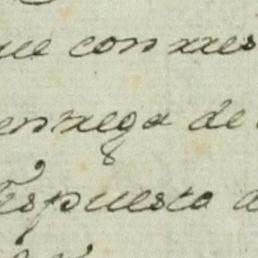 ue con rres
entrega de
respuesta a